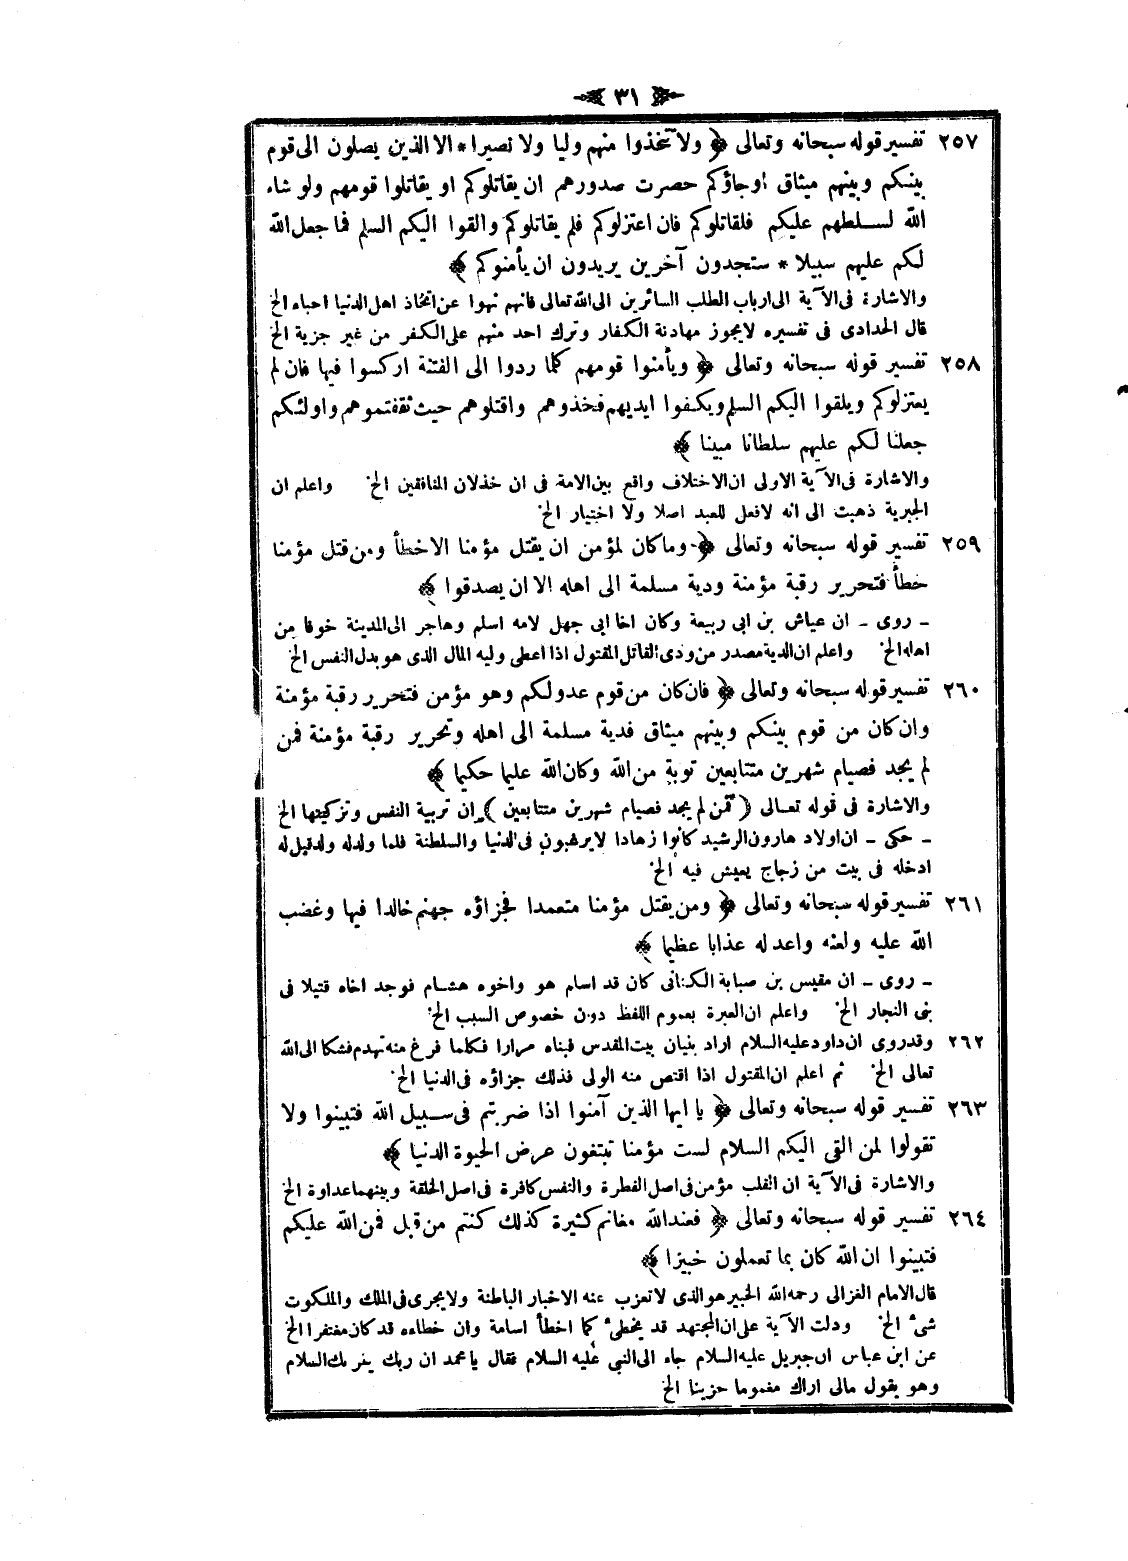 ٣١
٢٥٧ تفسير قوله سبحانه وتعالى ﴿ ولا تتخذوا منهم وليا ولا نصيرا * الا الذين يصلون الى قوم
بينكم وبينهم ميثاق اوجاؤكم حصرت صدورهم ان يقاتلوكم او يقاتلوا قومهم ولو شاء
الله لسلطهم عليكم فلقاتلوكم فان اعتزلوكم فلم يقاتلوكم والقوا اليكم السلم فما جعل الله
لكم عليهم سبيلا * ستجدون آخرين يريدون ان يأمنوكم ﴾
والاشارة فى الآية الى ارباب الطلب السائرين الى الله تعالى فانهم نهوا عن اتخاذ اهل الدنيا احباء الخ
قال الحدادى فى تفسيره لا يجوز مهادنة الكفار وترك احد منهم على الكفر من غير جزية الخ
٢٥٨ تفسير قوله سبحانه وتعالى ﴿ ويأمنوا قومهم كلما ردوا الى الفتنة اركسوا فيها فان لم
يعتزلوكم ويلقوا اليكم السلم ويكفوا ايديهم فخذوهم واقتلوهم حيث ثقفتموهم واولئكم
جعلنا لكم عليهم سلطانا مبينا ﴾
والاشارة فى الآية الاولى ان الاختلاف واقع بين الامة فى ان خذلان المنافقين الخ واعلم ان
الجبرية ذهبت الى انه لا فعل للعبد اصلا ولا اختيار الخ
٢٥٩ تفسير قوله سبحانه وتعالى ﴿ وما كان لمؤمن ان يقتل مؤمنا الاخطأ ومن قتل مؤمنا
خطأ فتحرير رقبة مؤمنة ودية مسلمة الى اهله الا ان يصدقوا ﴾
ـ روى ـ ان عياش بن ابى ربيعة وكان اخا ابى جهل لامه اسلم وهاجر الى المدينة خوفا من
اهله الخ واعلم ان الدية مصدر من ودى القاتل المقتول اذا اعطى وليه المال الذى هو بدل النفس الخ
٢٦٠ تفسير قوله سبحانه وتعالى ﴿ فان كان من قوم عدولكم وهو مؤمن فتحرير رقبة مؤمنة
وان كان من قوم بينكم وبينهم ميثاق فدية مسلمة الى اهله وتحرير رقبة مؤمنة فمن
لم يجد فصيام شهرين متتابعين توبة من الله وكان الله عليما حكيما ﴾
والاشارة فى قوله تعالى ( فمن لم يجد فصيام شهرين متتابعين ) ان تربية النفس وتزكيتها الخ
ـ حكى ـ ان اولاد هارون الرشيد كانوا زهادا لا يرغبون فى الدنيا والسلطنة فلما ولدله ولد قيل له
ادخله فى بيت من زجاج يعيش فيه الخ
٢٦١ تفسير قوله سبحانه وتعالى ﴿ ومن يقتل مؤمنا متعمدا فجزاؤه جهنم خالدا فيها وغضب
الله عليه ولعنه واعد له عذابا عظيما ﴾
ـ روى ـ ان مقيس بن صبابة الكنانى كان قد اسلم هو واخوه هشام فوجد اخاه قتيلا فى
بنى النجار الخ واعلم ان العبرة بعموم اللفظ دون خصوص السبب الخ
٢٦٢ وقد روى ان داود عليه السلام اراد بنيان بيت المقدس فبناه مرارا فكلما فرغ منه تهدم فشكا الى الله
تعالى الخ ثم اعلم ان المقتول اذا اقتص منه الولى فذلك جزاؤه فى الدنيا الخ
٢٦٣ تفسير قوله سبحانه وتعالى ﴿ يا ايها الذين آمنوا اذا ضربتم فى سبيل الله فتبينوا ولا
تقولوا لمن القى اليكم السلام لست مؤمنا تبتغون عرض الحيوة الدنيا ﴾
والاشارة فى الآية ان القلب مؤمن فى اصل الفطرة والنفس كافرة فى اصل الخلقة وبينهما عداوة الخ
٢٦٤ تفسير قوله سبحانه وتعالى ﴿ فعند الله مغانم كثيرة كذلك كنتم من قبل فمن الله عليكم
فتبينوا ان الله كان بما تعملون خبيرا ﴾
قال الامام الغزالى رحمه الله الخبير هو الذى لا تعزب عنه الاخبار الباطنة ولا يجرى فى الملك والملكوت
شىء الخ ودلت الآية على ان المجتهد قد يخطىء كما اخطأ اسامة وان خطاءه قد كان مغتفرا الخ
عن ابن عباس ان جبريل عليه السلام جاء الى النبى عليه السلام فقال يا محمد ان ربك يقرئك السلام
وهو يقول مالى اراك مغموما حزينا الخ